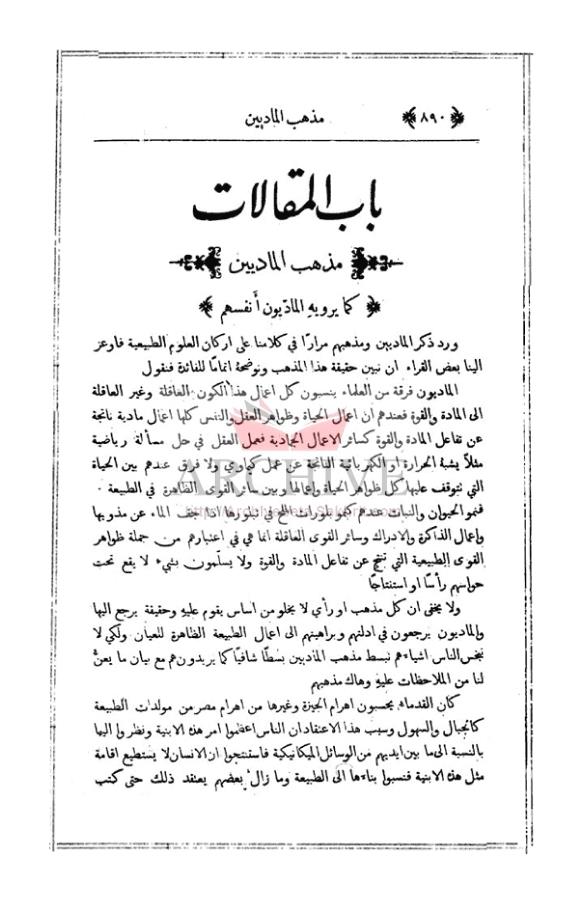 ﴿ ٨٩٠ ﴾ مذهب الماديين
باب المقالات
مذهب الماديين
﴿ كما يرويهِ الماديون أنفسهم ﴾
ورد ذكر الماديين ومذهبهم مرارًا في كلامنا على اركان العلوم الطبيعية فاوعز
الينا بعض القراء ان نبين حقيقة هذا المذهب ونوضحهُ اتمامًا للفائدة فنقول
الماديون فرقة من العلماء ينسبون كل اعمال هذا الكون العاقلة وغير العاقلة
الى المادة والقوة فعندهم ان اعمال الحياة وظواهر العقل والنفس كلها اعمال مادية ناتجة
عن تفاعل المادة والقوة كسائر الاعمال الجمادية فعمل العقل في حل مسألة رياضية
مثلاً يشبهُ الحرارة او الكهربائية الناتجة عن عمل كيماوي ولا فرق عندهم بين الحياة
التي تتوقف عليها كل ظواهر الحياة واعمالها وبين سائر القوى الظاهرة في الطبيعة
فنمو الحيوان والنبات عندهم كنمو بلورات الملح في تبلورها اذا جف الماء عن مذوبها
واعمال الذاكرة والادراك وسائر القوى العاقلة انما هي في اعتبارهم من جملة ظواهر
القوى الطبيعية التي تنتج عن تفاعل المادة والقوة ولا يسلّمون بشيءٍ لا يقع تحت
حواسهم رأسًا او استنتاجًا
ولا يخفى ان كل مذهب او رأي لا يخلو من اساس يقوم عليهِ وحقيقة يرجع اليها
والماديون يرجعون في ادلتهم وبراهينهم الى اعمال الطبيعة الظاهرة للعيان ولكي لا
نبخس الناس اشياءهم نبسط مذهب الماديين بسطًا شافيًا كما يريدون هم مع بيان ما يعنُّ
لنا من الملاحظات عليهِ وهاك مذهبهم
كان القدماء يحسبون اهرام الجيزة وغيرها من اهرام مصر من مولدات الطبيعة
كالجبال والسهول وسبب هذا الاعتقاد ان الناس اعظموا امر هذه الابنية ونظروا اليها
بالنسبة الى ما بين ايديهم من الوسائل الميكانيكية فاستنتجوا ان الانسان لا يستطيع اقامة
مثل هذه الابنية فنسبوا بناءها الى الطبيعة وما زال بعضهم يعتقد ذلك حتى كتب
ARCHIVE